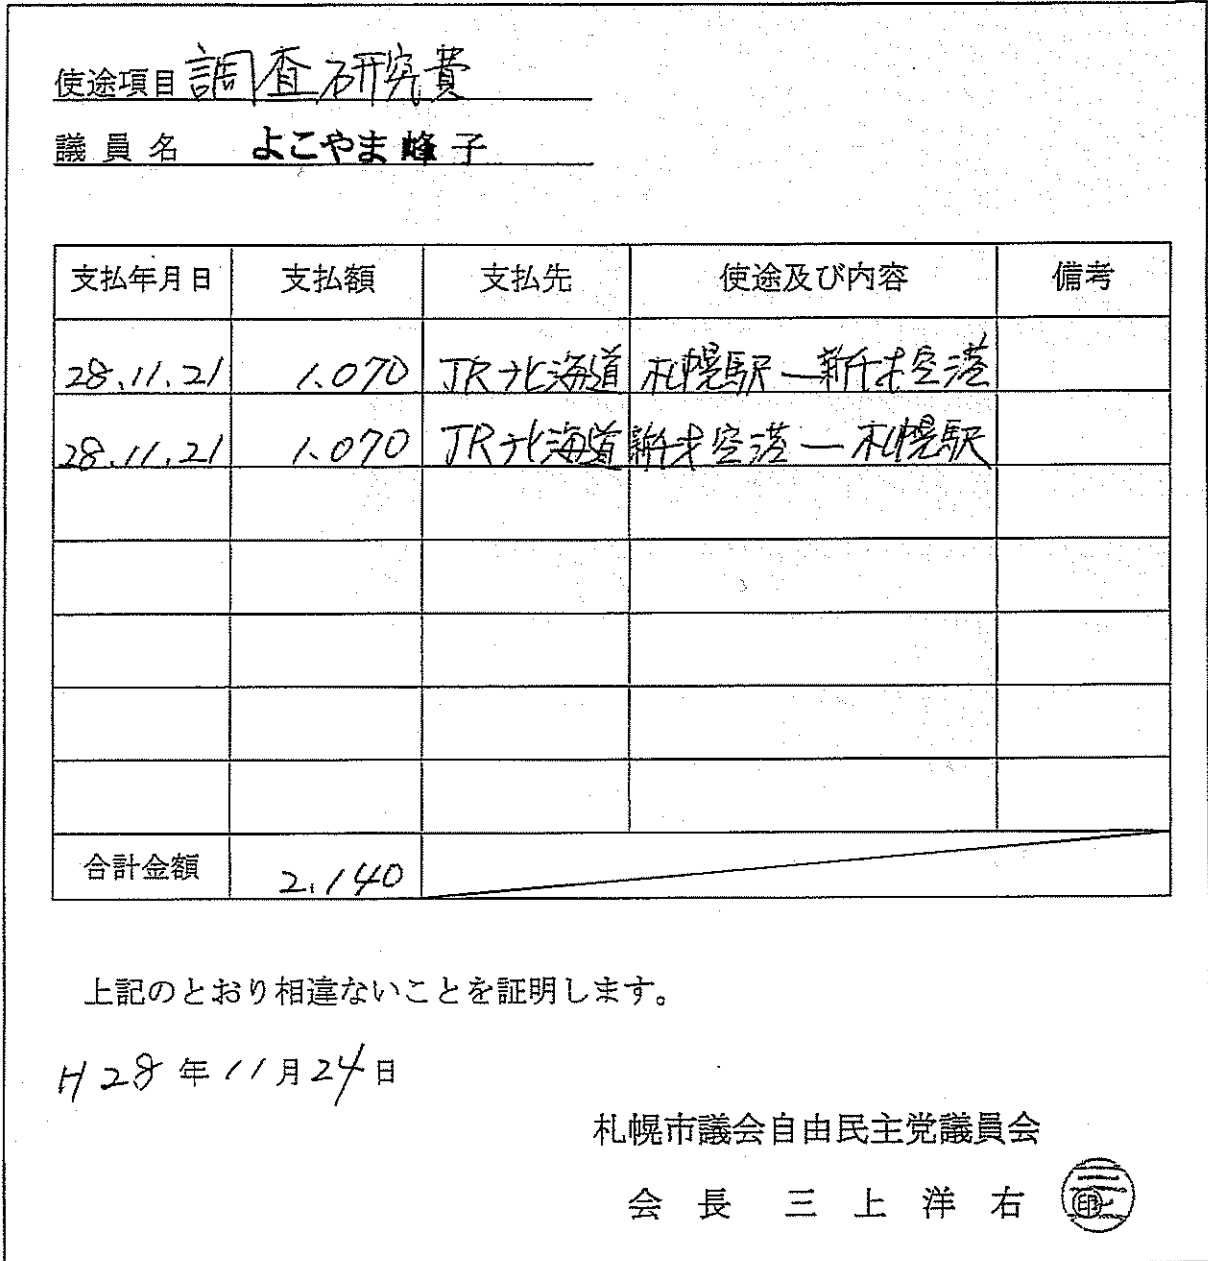 使途項目 調査研究費
議員名 よこやま峰子
支払年月日 支払額 支払先 使途及び内容 備考
28.11.21 1.070 JR北海道 札幌駅―新千才空港
28.11.21 1.070 JR北海道 新千才空港―札幌駅
合計金額 2.140
上記のとおり相違ないことを証明します。
H28年11月24日
札幌市議会自由民主党議員会
会長 三上洋右 印